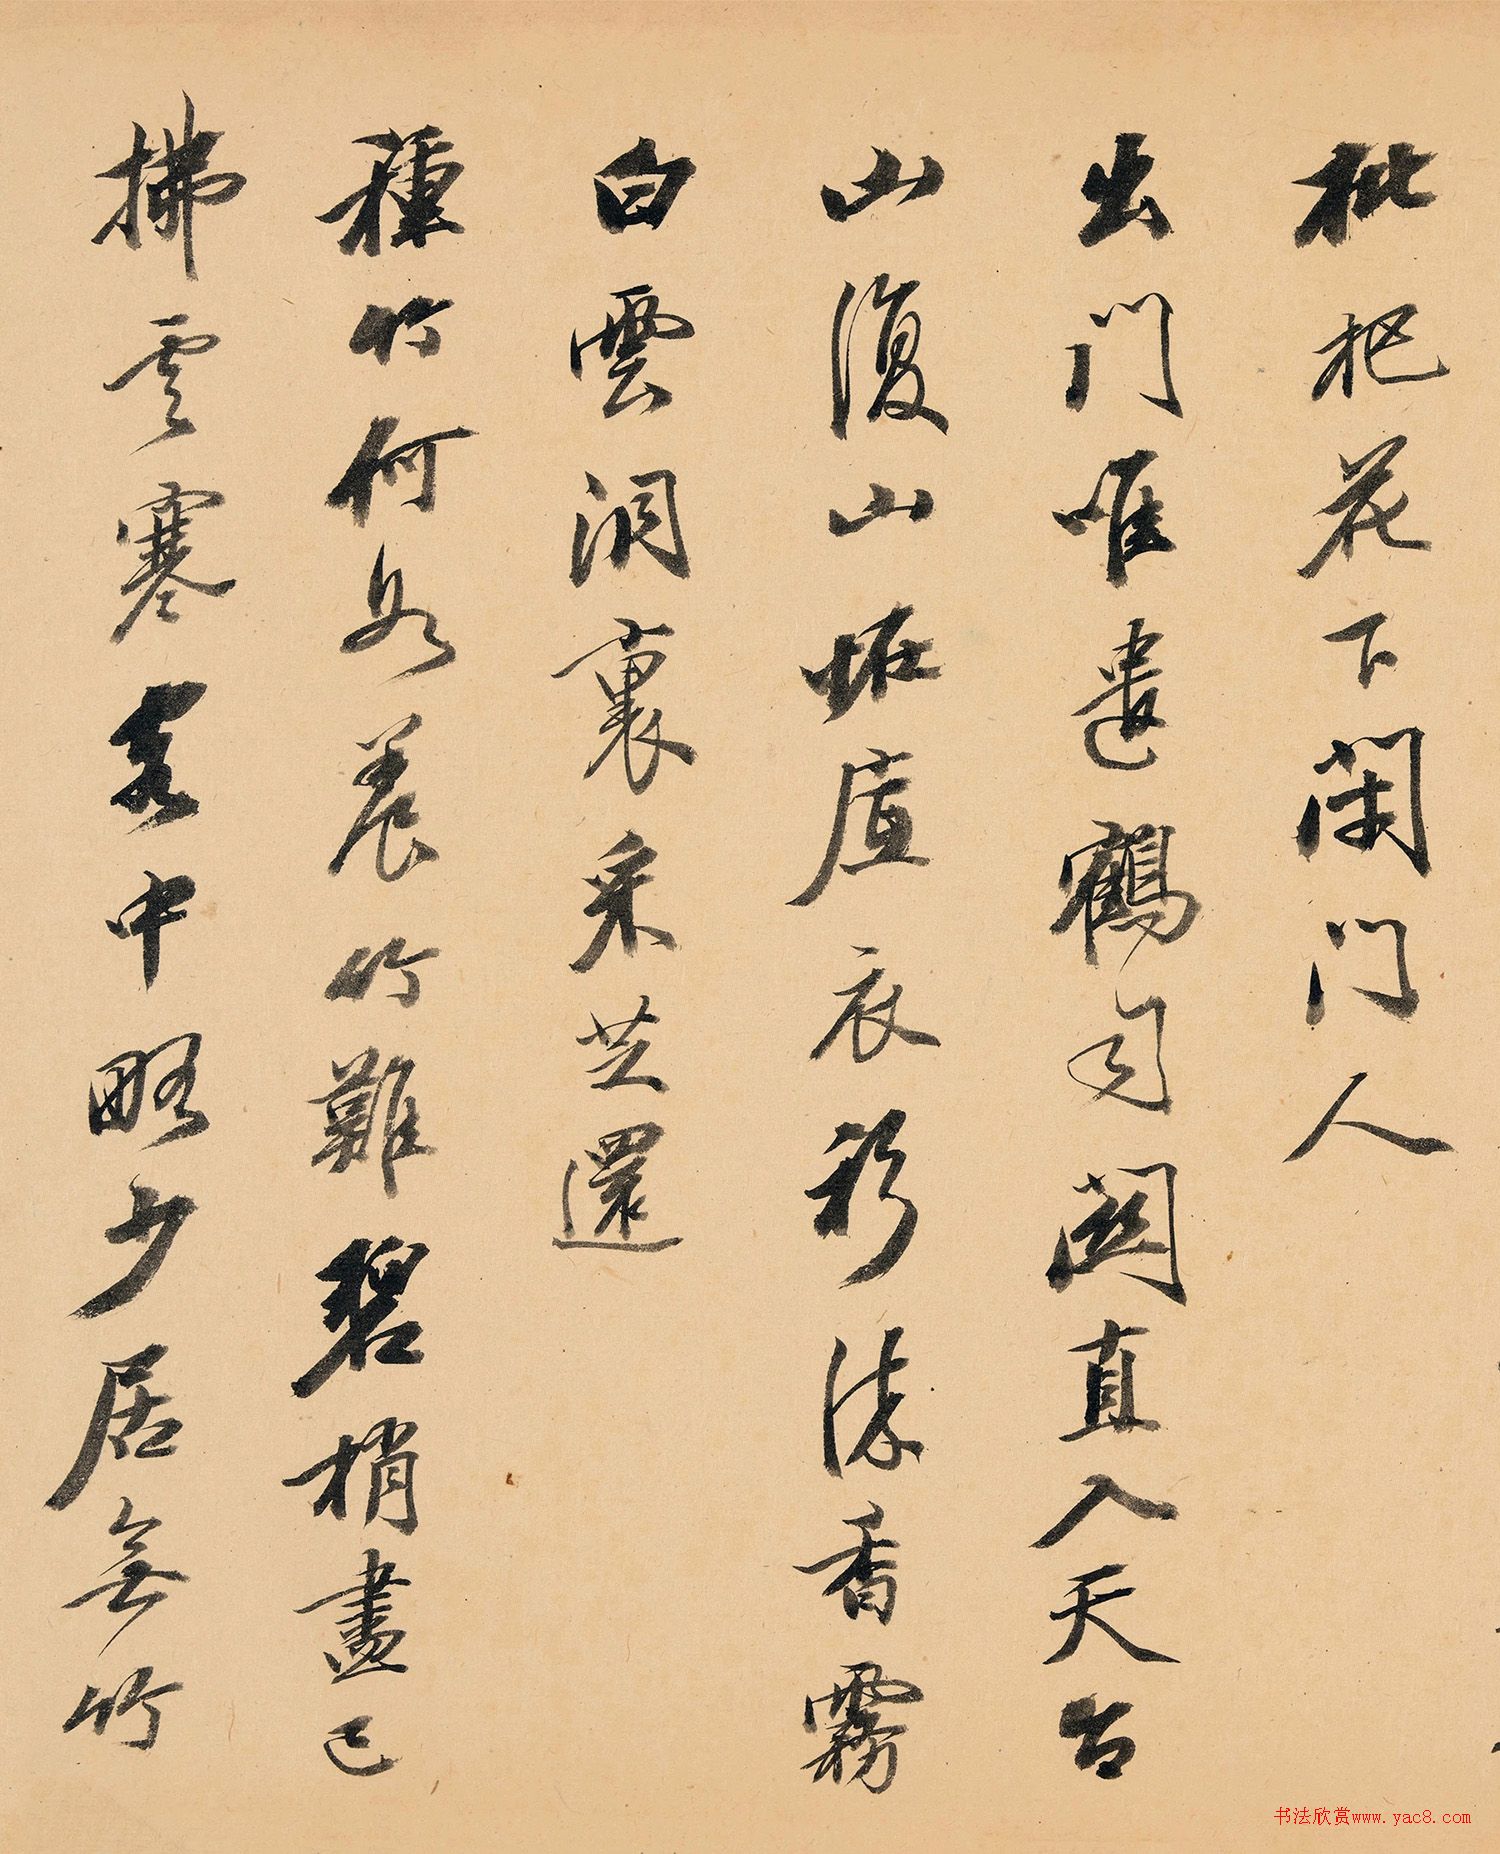 枇杷花下閉門人
出門唯遣鶴司關直入天台
山復山恠底衣衫染香霧
白雲洞裏采芝還
種竹何如養竹難碧梢盡已
拂雲寒客中略少居無竹
书法欣赏www.yac8.com